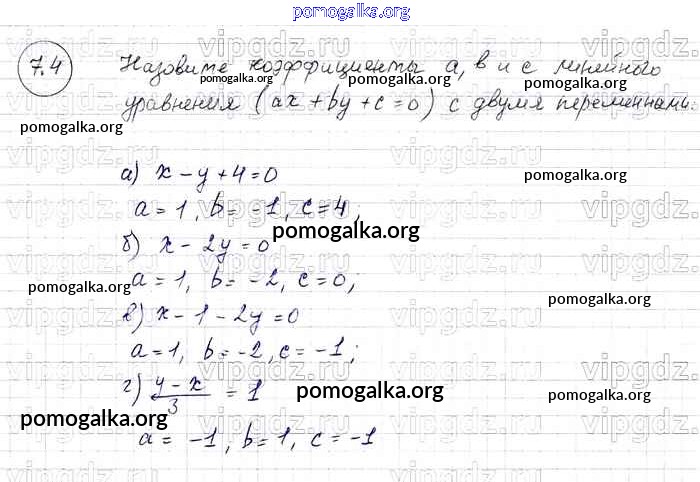 pomogalka.org
7.4 Назовите коэффициенты a, b и c линейного
pomogalka.org pomogalka.org
уравнения (ax + by + c = 0) с двумя переменными.
pomogalka.org pomogalka.org
vipgdz.ru
а) x - y + 4 = 0
pomogalka.org
a = 1, b = -1, c = 4;
pomogalka.org
б) x - 2y = 0
pomogalka.org a = 1, b = -2, c = 0;
pomogalka.org
в) x - 1 - 2y = 0
a = 1, b = -2, c = -1;
г) y - x / 3 = 1
pomogalka.org
pomogalka.org pomogalka.org
a = -1, b = 1, c = -1